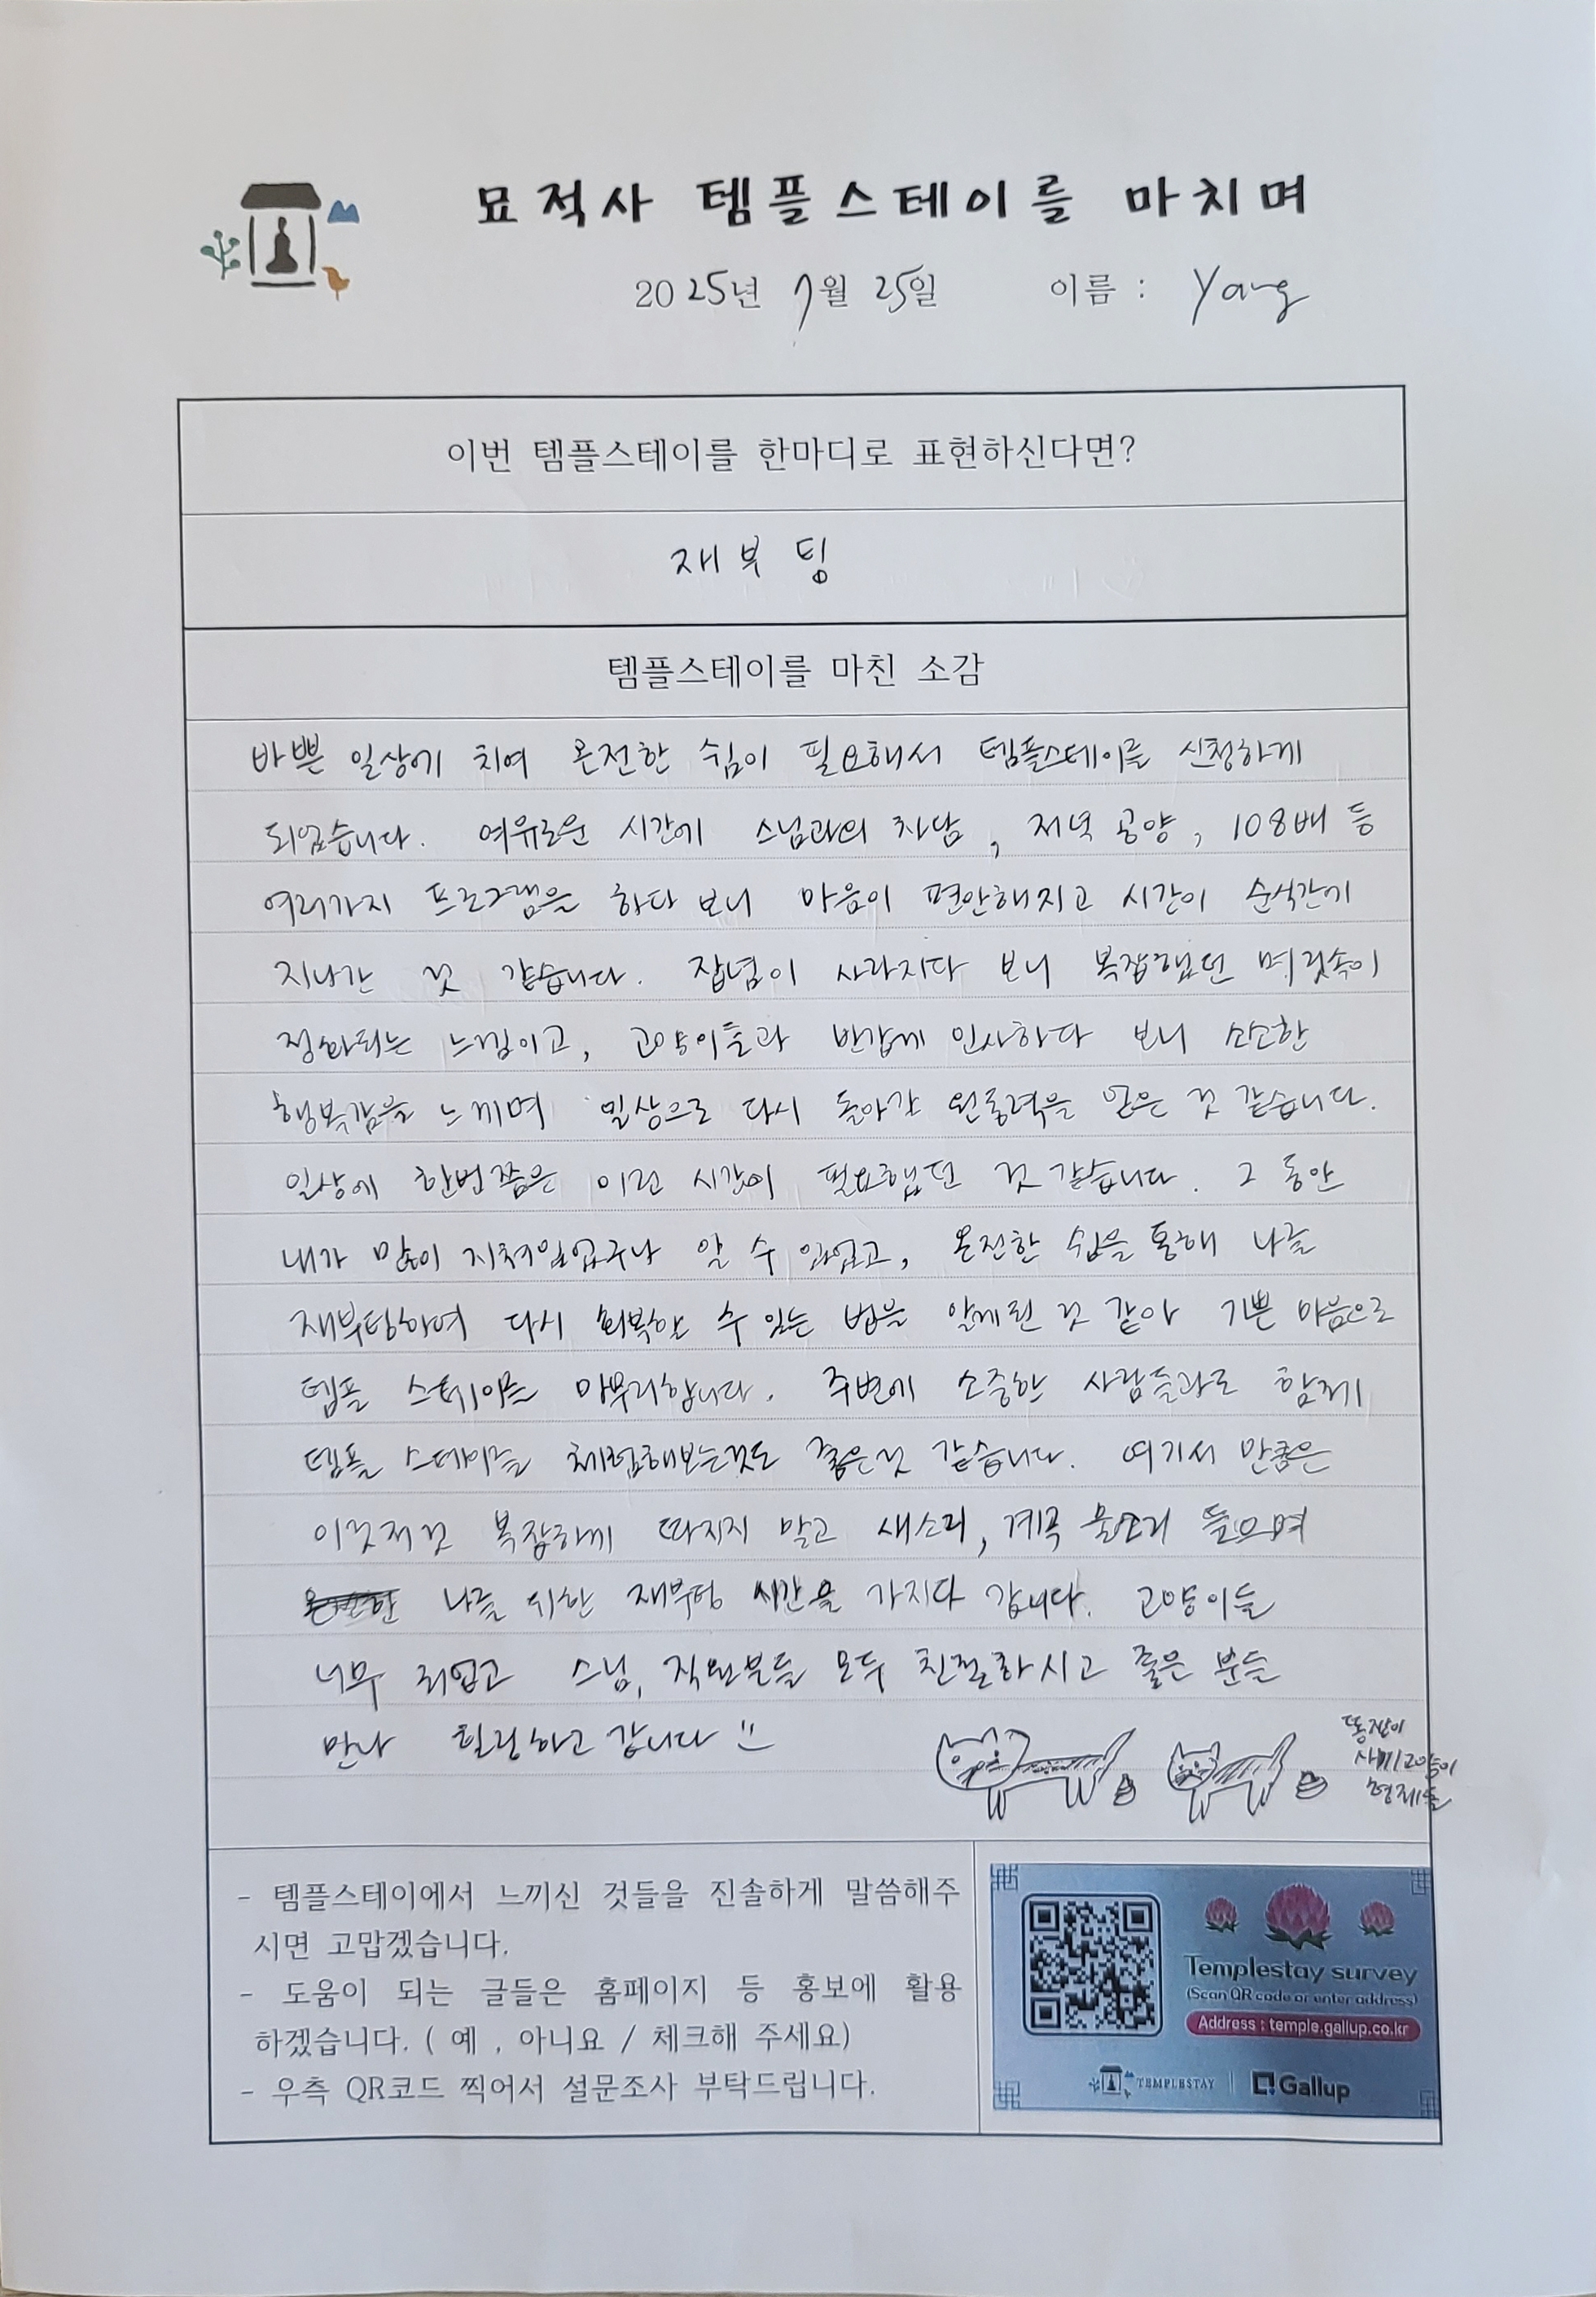 묘적사 템플스테이를 마치며
2025년 7월 25일 이름 : Yang
이번 템플스테이를 한마디로 표현하신다면?
재부팅
템플스테이를 마친 소감
바쁜 일상에 치여 온전한 쉼이 필요해서 템플스테이를 신청하게
되었습니다. 여유로운 시간에 스님과의 차담, 저녁 공양, 108배 등
여러가지 프로그램을 하다 보니 마음이 편안해지고 시간이 순식간에
지나간 것 같습니다. 잡념이 사라지다 보니 복잡했던 머릿속이
정화되는 느낌이고, 고양이들과 반갑게 인사하다 보니 소소한
행복감을 느끼며 일상으로 다시 돌아갈 원동력을 얻은 것 같습니다.
일상에 한번쯤은 이런 시간이 필요했던 것 같습니다. 그 동안
내가 많이 지쳐있었구나 알 수 있었고, 온전한 쉼을 통해 나를
재부팅하여 다시 회복할 수 있는 법을 알게된 것 같아 기쁜 마음으로
템플 스테이를 마무리합니다. 주변에 소중한 사람들과도 함께
템플 스테이를 체험해보는것도 좋은것 같습니다. 여기서 만큼은
이것저것 복잡하게 따지지 말고 새소리, 계곡 물소리 들으며
나를 위한 재부팅 시간을 가지다 갑니다. 고양이들
너무 귀엽고 스님, 직원분들 모두 친절하시고 좋은 분들
만나 힐링하고 갑니다 :)
똥쟁이
새끼고양이
형제들
- 템플스테이에서 느끼신 것들을 진솔하게 말씀해주
시면 고맙겠습니다.
- 도움이 되는 글들은 홈페이지 등 홍보에 활용
하겠습니다. ( 예 , 아니요 / 체크해 주세요)
- 우측 QR코드 찍어서 설문조사 부탁드립니다.
Templestay survey
(Scan QR code or enter address)
Address : temple.gallup.co.kr
TEMPLESTAY Gallup